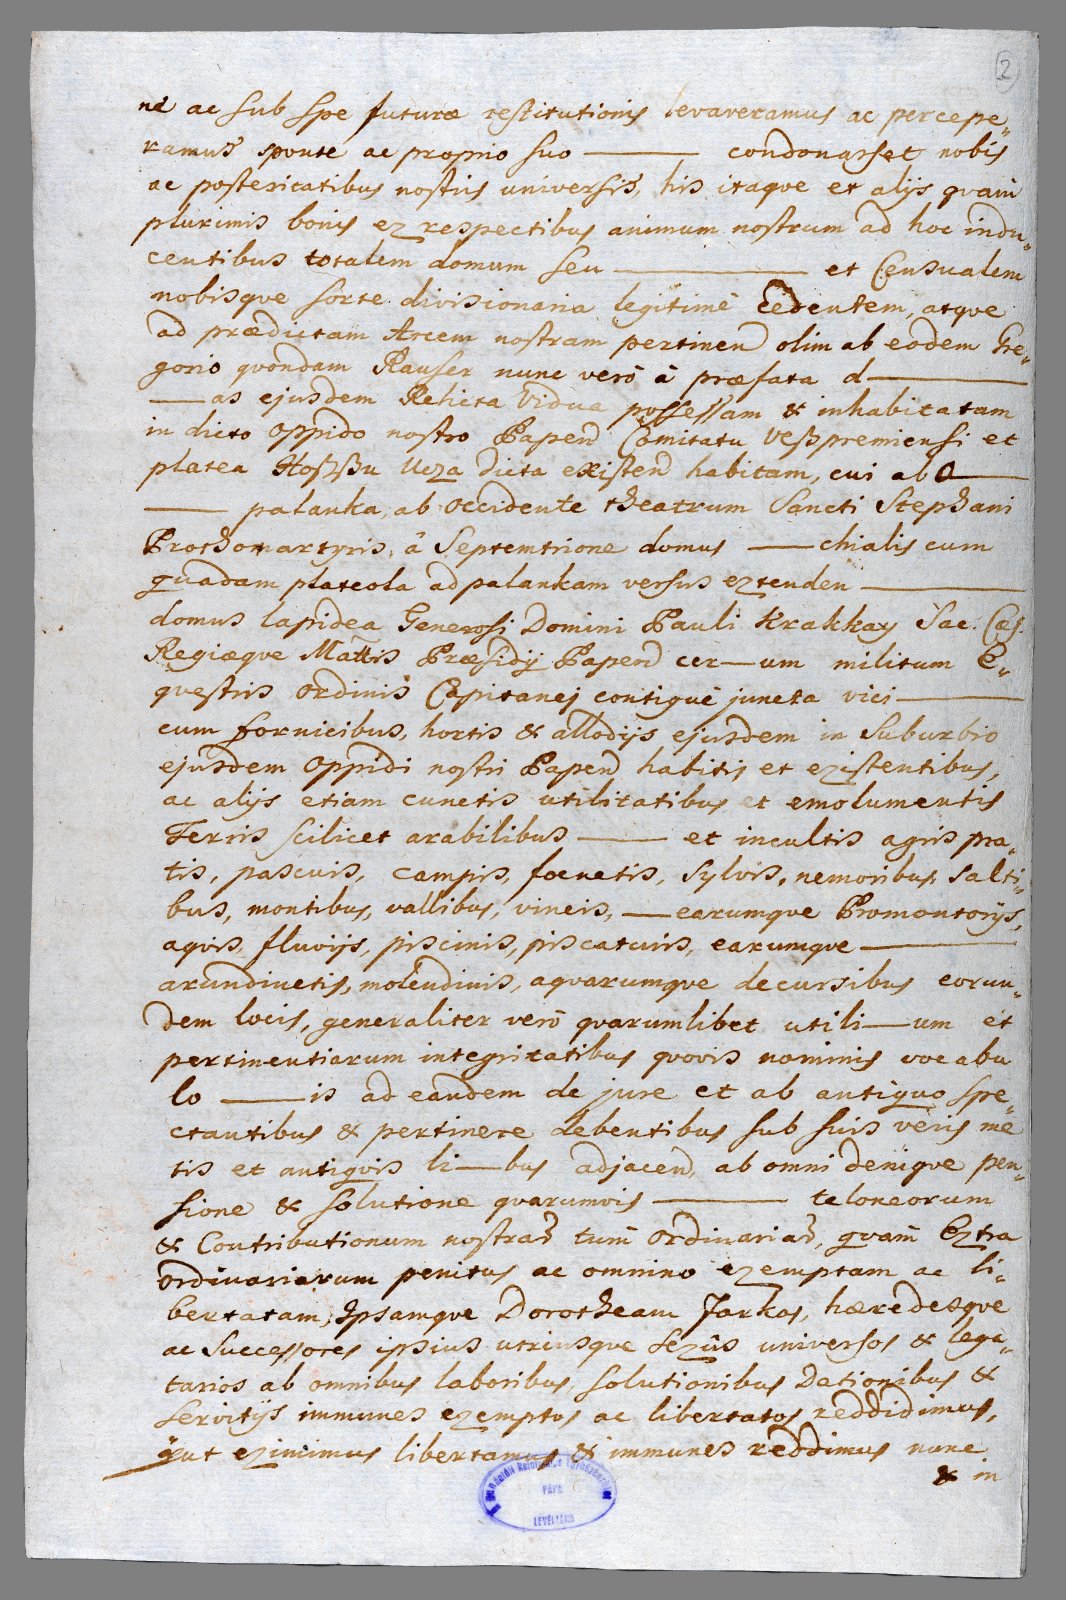 2
nẽ ac sub spe futuræ restitutionis levaveramus ac percepe„
ramus sponte ac proprio suo ——— condonasset nobis
ac posteritatibus nostris universis, his itaque et alijs quam
plurimis bonis ex respectibus animum nostrum ad hoc indu„
centibus totalem domum seu ——— et Censualem
nobisque sorte divisionaria legitimè cedentem, atque
ad prædictam Arcem nostram pertinen̄ olim ab eodem Gre„
gorio quondam Rauser nunc verò à præfata d———
— as ejusdem Relicta Vidua possessam & inhabitatam
in dicto oppido nostro Papen̄ Comitatu Veszpremiensi et
platea Hoszszu Ucza dicta existen̄ habitam, cui ab O———
——— palanka, ab occidente theatrum Sancti Stephani
Prothomartyris, â Septemtrione domus ——chialis cum
quadam plateola ad palankam versus extenden ———
domus lapidea Generosi Domini Pauli Krakkay Sac. Cæs.
Regiæque Mattis Præsidij Papen̄ cer—um militum E„
questris ordinis Capitanej contiguè juncta vici———
cum fornicibus, hortis & allodijs ejusdem in Suburbio
ejusdem oppidi nostri Papen̄ habitis et existentibus,
ac alijs etiam cunctis utilitatibus et emolumentis
Terris scilicet arabilibus ——— et incultis agris pra„
tis, pascuis, campis, foenetis, sylvis, nemoribus, salti„
bus, montibus, vallibus, vineis, —earumque Promontorijs,
aquis, fluvijs, piscinis, piscaturis, earumque ———
arundinetis, molendinis, aquarumque decursibus eorun„
dem locis, generaliter verò quarumlibet utili—um et
pertinentiarum integritatibus quovis nominis vocabu
lo ——is ad eandem de jure et ab antiquo spe„
ctantibus & pertinere debentibus sub suis veris me
tis et antiquis li—bus adjacen̄, ab omni denique pen„
sione & solutione quarumvis ——— teloneorum
& Contributionum nostrar̄ tum ordinariar̄, quàm Extra
ordinariarum penitus ac omnino exemptam ac li„
bertatam, Ipsamque Dorotheam Farkas, hæredesque
ac Successores ipsius utriusque sexûs universos & lega„
tarios ab omnibus laboribus, solutionibus Dationibus &
servitijs immunes exemptos ac libertatos reddidimus,
prout eximimus libertamus & immunes reddimus nunc
& in
PÁPA
LEVÉLTÁRA